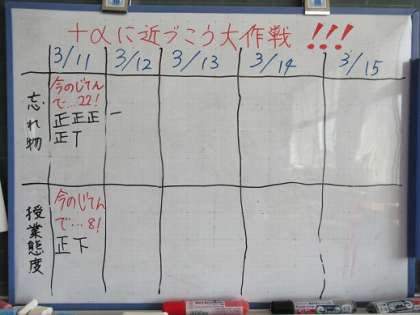 +αに近づこう大作戦!!!
3/11 3/12 3/13 3/14 3/15
忘れ物
今のじてん
で…22!
正正正
正T
一
授業態度
今のじてん
で…8!
正下